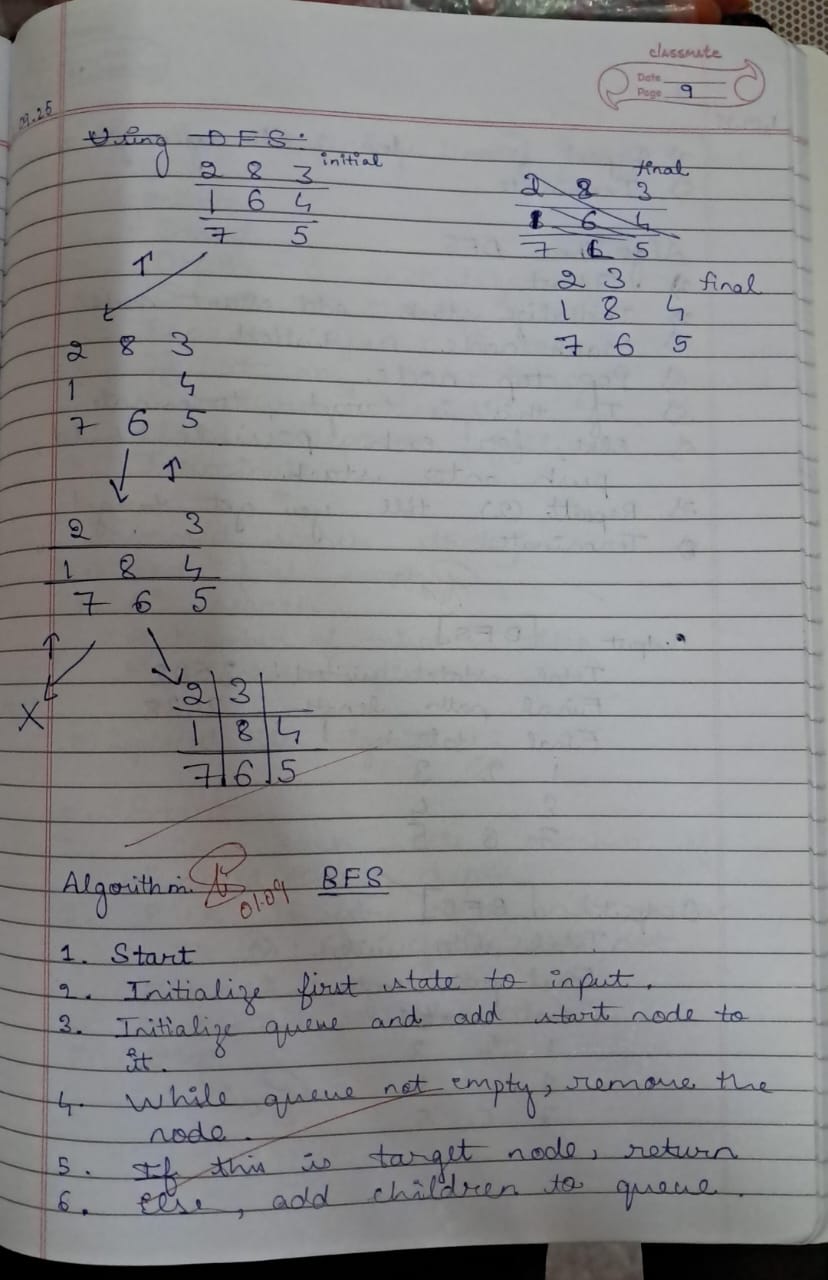 classmate
Date
Page 9
09.25
Using DFS:
2 8 3 initial
1 6 4
7 5
final
2 8 3
1 6 4
7 6 5
2 3 final
1 8 4
7 6 5
↑
2 8 3
1 4
7 6 5
↑
2 3
1 8 4
7 6 5
↑
X
2 3
1 8 4
7 6 5
Algorithm: BFS
01.09
1. Start
2. Initialize first state to input.
3. Initialize queue and add start node to
it.
4. While queue not empty, remove the
node.
5. If this is target node, return
6. Else, add children to queue.